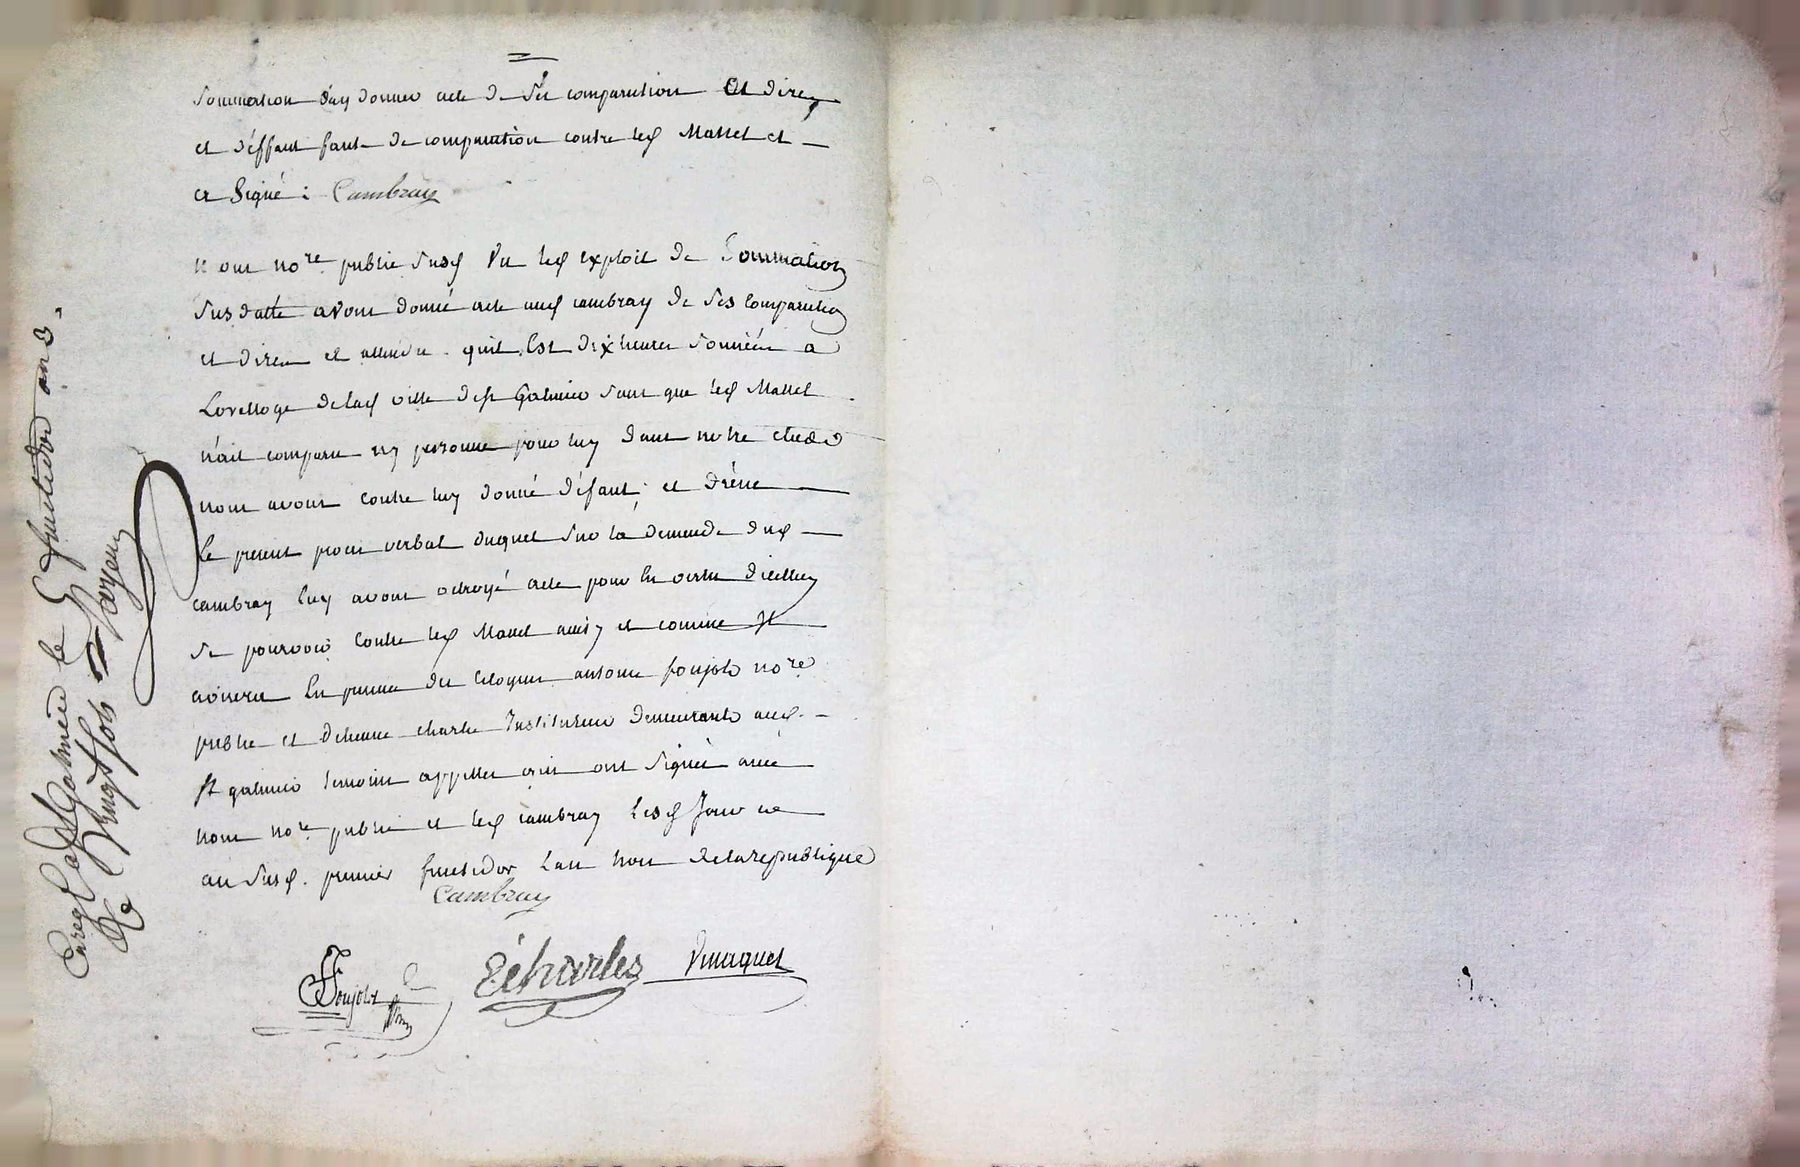 sommation d'en donner acte de ses comparution et dires
et déffaut faute de comparution contre led Mattet et
a signé : Cambray
Nous nore public susd Vu led exploit de Sommation
susdatté avons donné acte aud cambray de ses comparution
et dires et attendu quil est dix heures sonnées a
Lorelloge delad ville de st Galmier sans que led Mattet
n'ait comparu ny personne pour luy dans notre étude
nous avons contre luy donné défaut, et
le present procès verbal duquel sur la demande dud
cambray luy avons octroyé acte pour en vertu dicelluy
se pourvoir contre led Mattet ainsy et comme il
avisera En presence des citoyens antoine foujols nore
public et detienne charles Instituteur demeurants aud
st galmier temoins appellés qui ont signés avec
nous nore public et led cambray lesd jour
an susd. premier fructidor l'an trois de la republique
Cambray
Foujols
E charles
Enreg à St Galmier le 6 fructidor an 3.
Rs Vingt sols